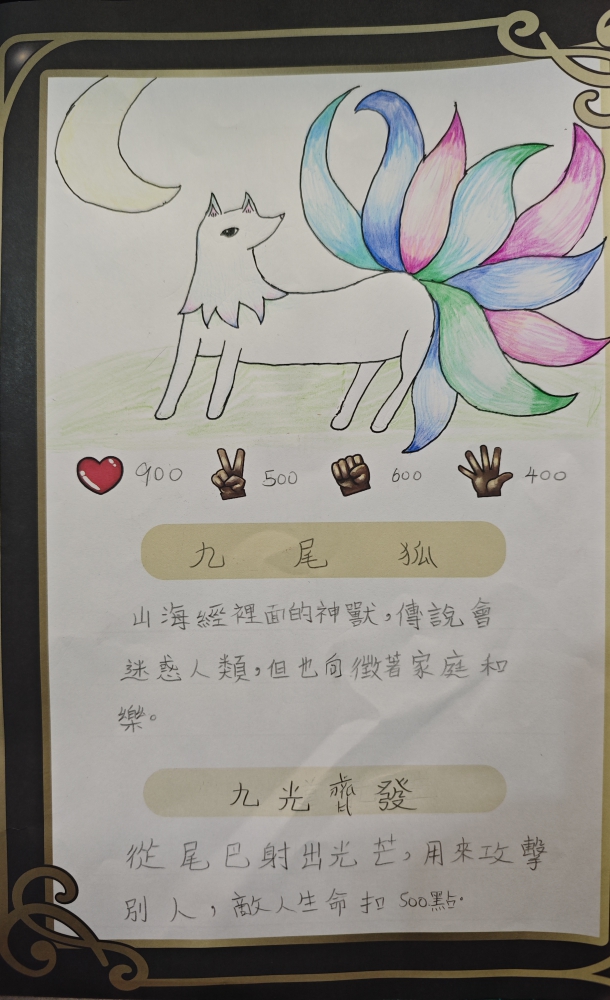 900 500 600 400
九尾狐
山海經裡面的神獸,傳說會
迷惑人類,但也向徵著家庭和
樂。
九光齊發
從尾巴射出光芒,用來攻擊
別人,敵人生命扣500點.